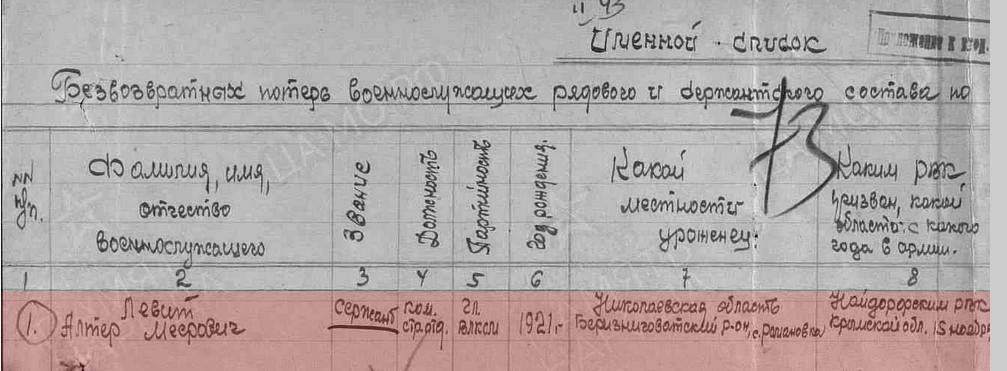 II 43
Именной список
Приложение к вход.
Безвозвратных потерь военнослужащих рядового и сержантского состава по
73
NN п/п.
Фамилия, имя,
отчество
военнослужащего
Звание
Должность
Партийность
Год рождения.
Какой
местности
уроженец:
Каким РВК
призван, какой
области с какого
года в армии.
1 2 3 4 5 6 7 8
1.
Левит
Алтер Меерович
Сержант
ком.
отд.
чл.
ВЛКСМ
1921г
Николаевская область
Березниговатский р-он, с. Романовка
Найдорфским РВК
Крымской обл. 15 ноябр